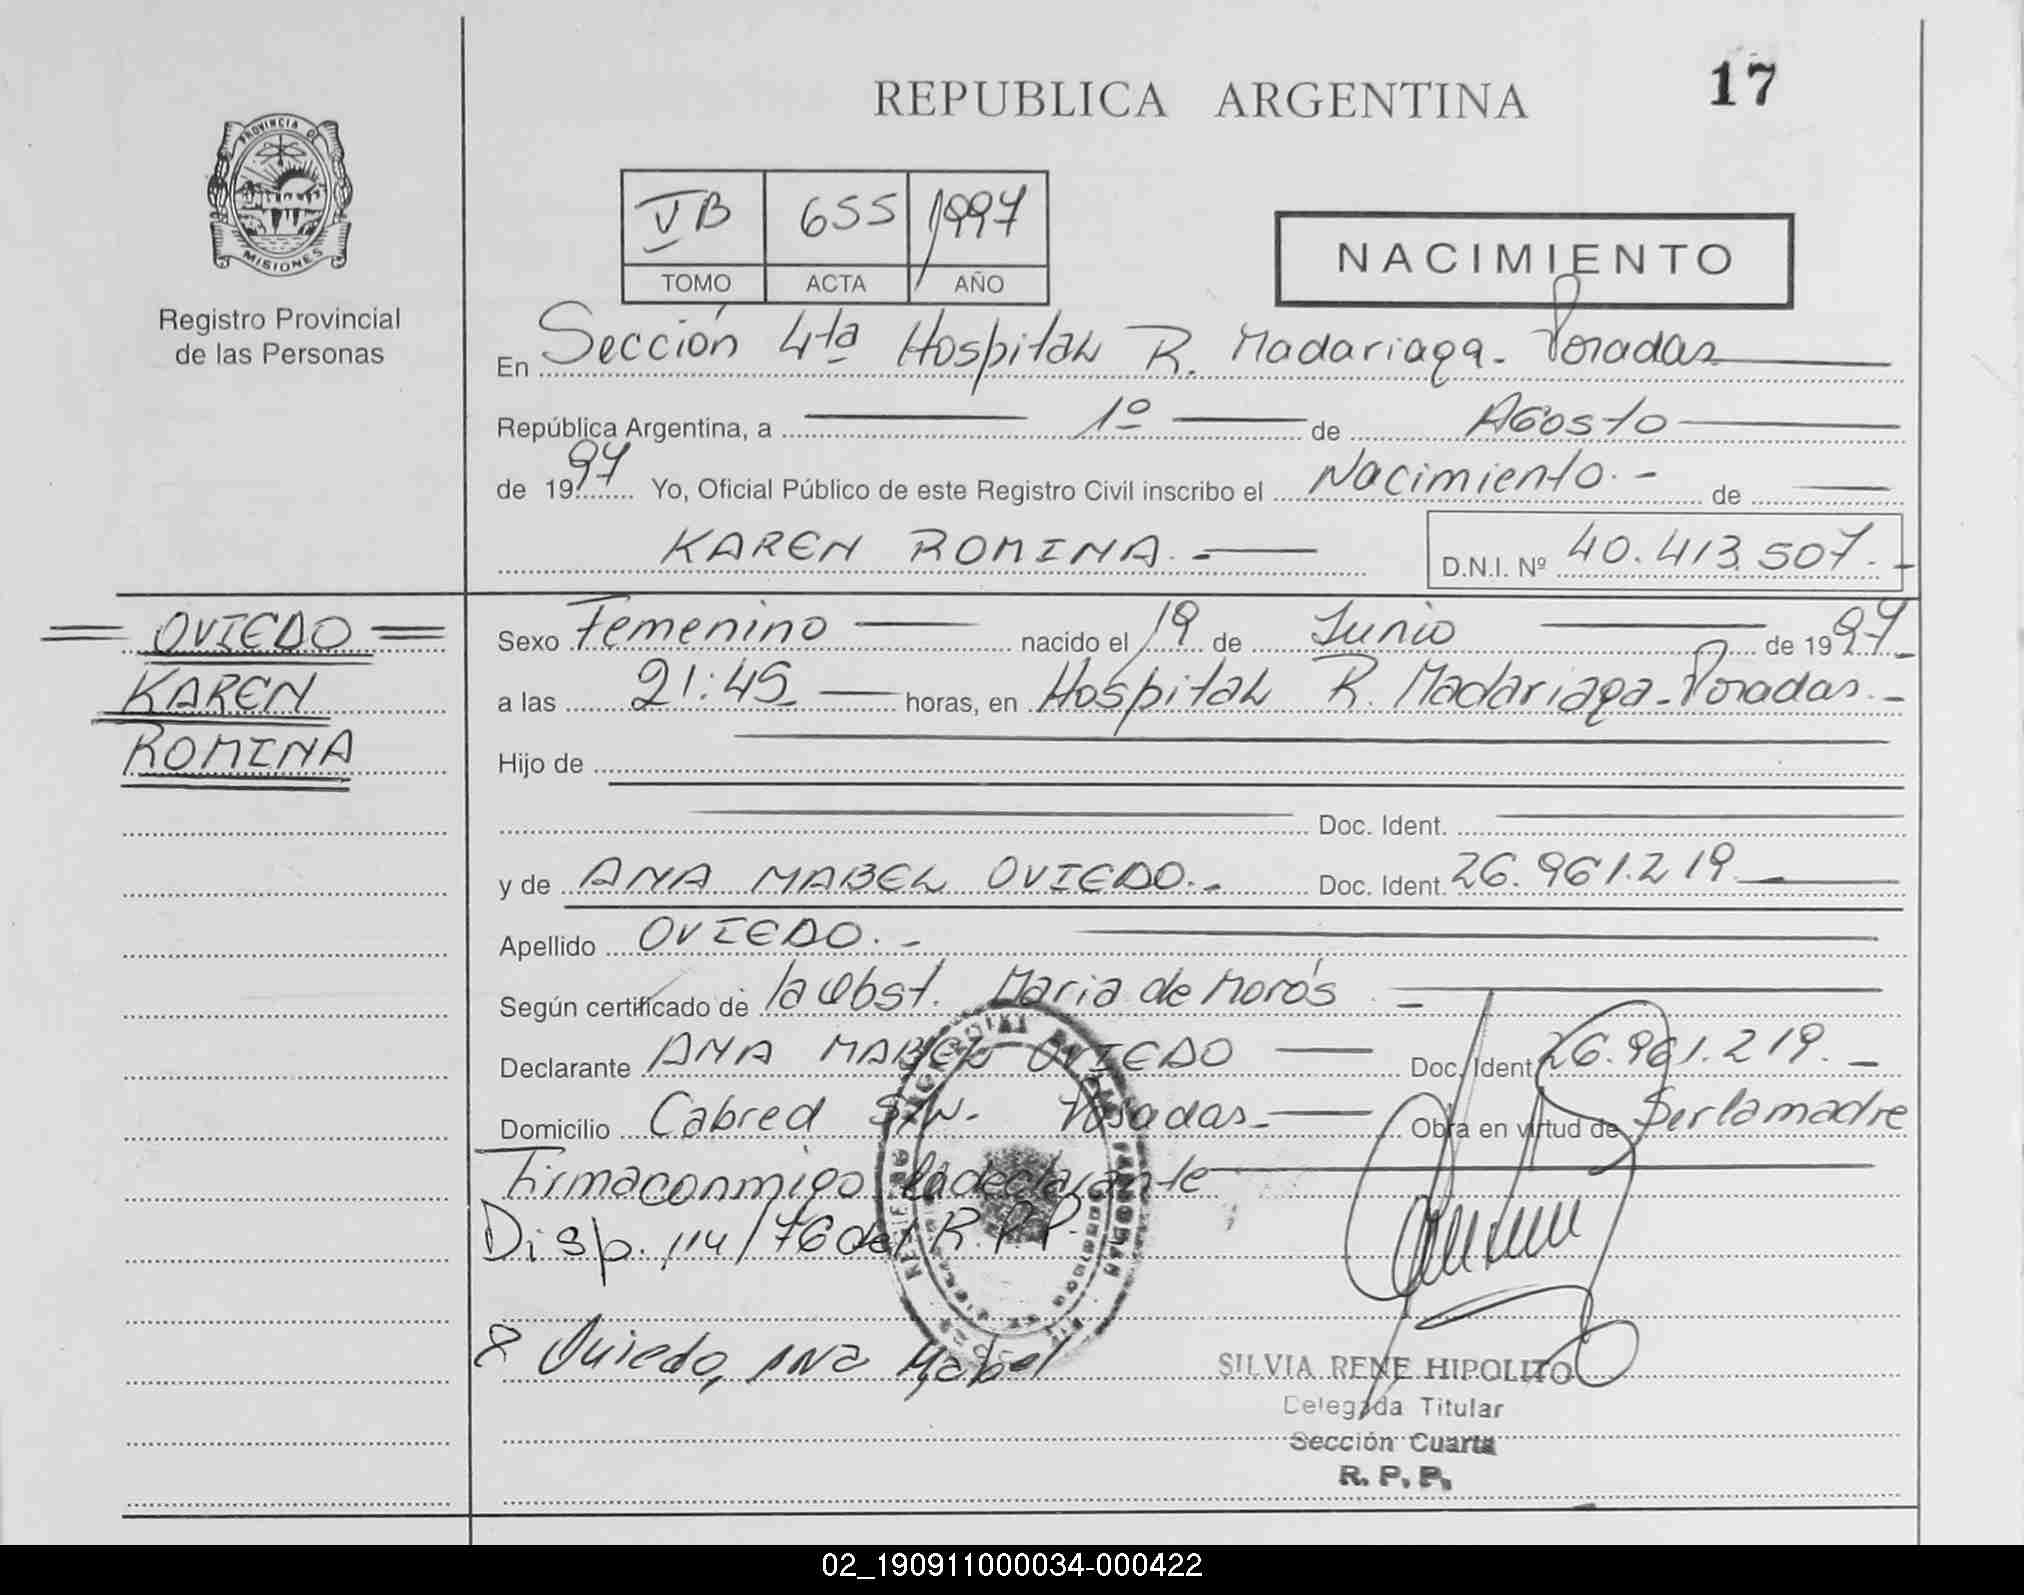 17
REPUBLICA ARGENTINA
PROVINCIA DE
MISIONES
Registro Provincial
de las Personas
VB 655 1997
TOMO ACTA AÑO
NACIMIENTO
En Sección 4ta Hospital R. Madariaga. Posadas
República Argentina, a 1º de Agosto
de 1997 Yo, Oficial Público de este Registro Civil inscribo el Nacimiento.- de
KAREN ROMINA.- D.N.I. Nº 40.413.507.-
OVIEDO
KAREN
ROMINA
Sexo Femenino nacido el 19 de Junio de 1997
a las 21:45 horas, en Hospital R. Madariaga-Posadas.-
Hijo de
Doc. Ident.
y de ANA MABEL OVIEDO.- Doc. Ident. 26.961.219
Apellido OVIEDO.-
Según certificado de la Obst. Maria de Morós -
Declarante ANA MABEL OVIEDO Doc. Ident 26.961.219.-
Domicilio Cabred S/N- Posadas- Obra en virtud de Ser la madre
Firma conmigo la declarante
Disp. 114/76 del R.P.P.
Oviedo, Ana Mabel
SILVIA RENE HIPOLITO
Delegada Titular
Sección Cuarta
R. P. P.
02_190911000034-000422